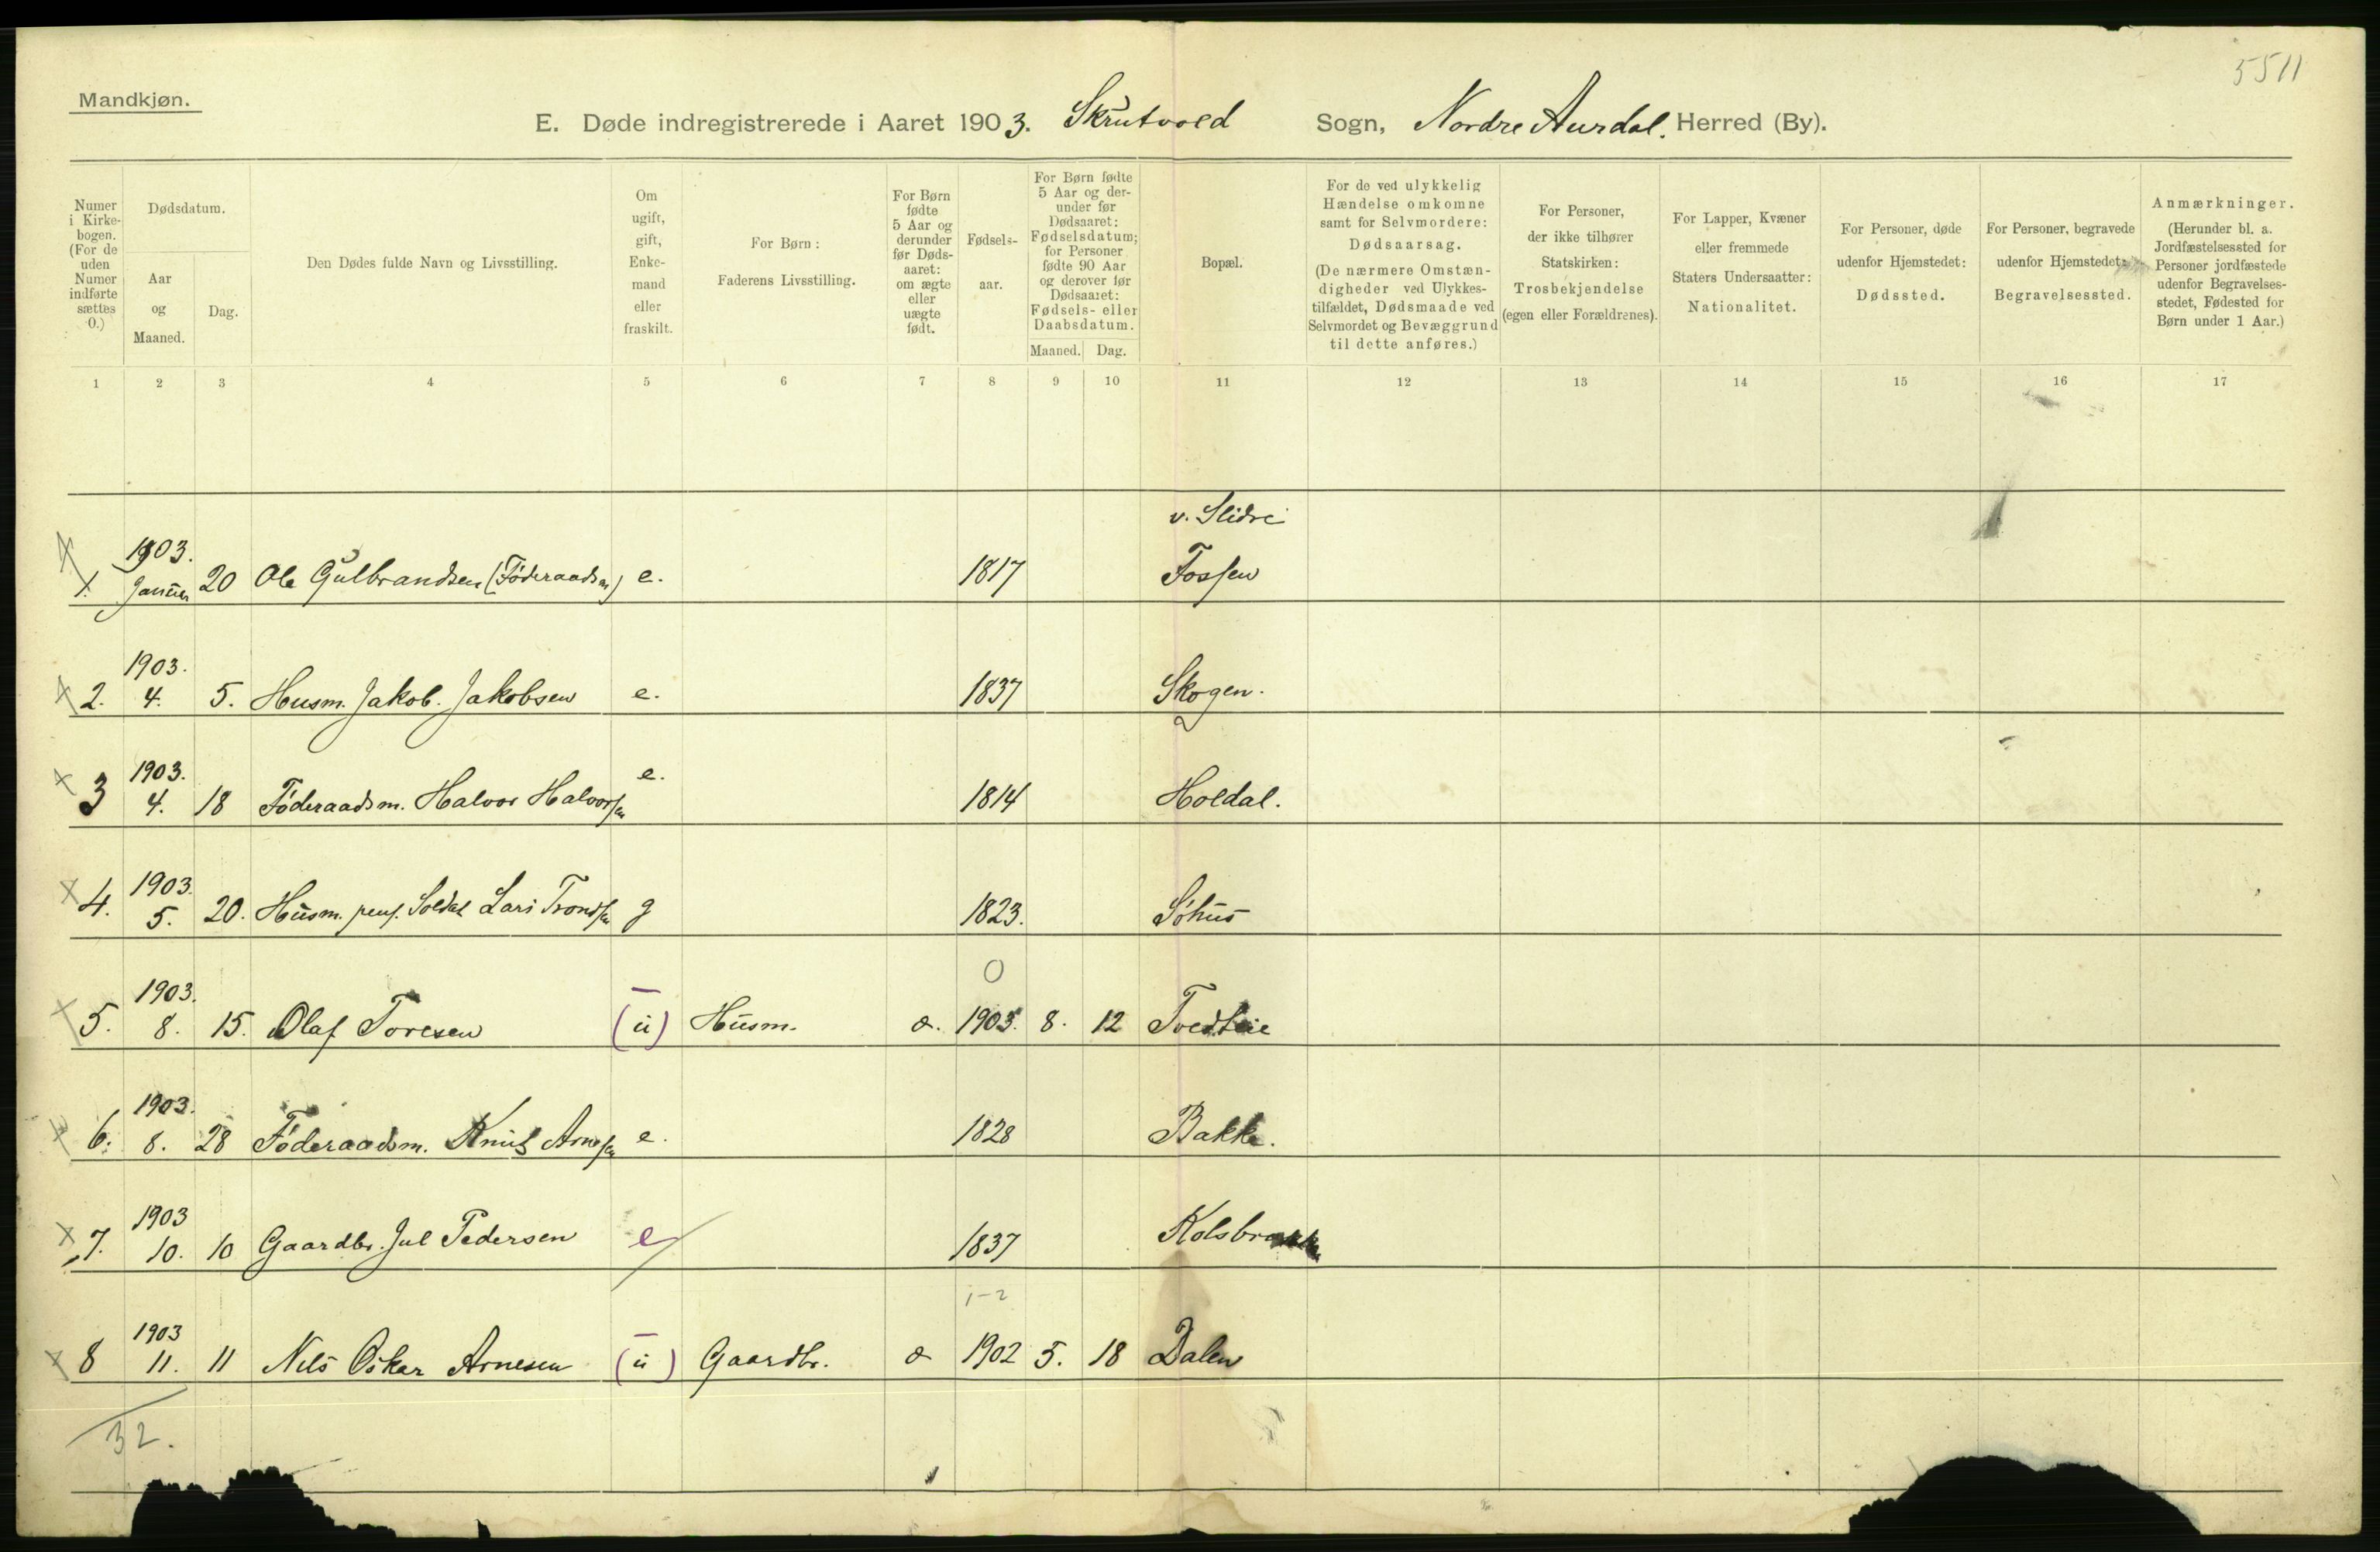 5511
Mandkjøn.
E. Døde indregistrerede i Aaret 1903. Skrutvold Sogn, Nordre Aurdal. Herred (By).
Numer i Kirke-bogen. (For de uden Numer indførte sættes 0.)
Dødsdatum.
Aar og Maaned.
Dag.
Den Dødes fulde Navn og Livsstilling.
Om ugift, gift, Enke-mand eller fraskilt.
For Børn: Faderens Livsstilling.
For Børn fødte 5 Aar og derunder før Døds-aaret: om ægte eller uægte født.
Fødsels-aar.
For Børn fødte 5 Aar og der-under før Dødsaaret: Fødselsdatum; for Personer fødte 90 Aar og derover før Dødsaaret: Fødsels- eller Daabsdatum.
Maaned. Dag.
Bopæl.
For de ved ulykkelig Hændelse omkomne samt for Selvmordere: Dødsaarsag. (De nærmere Omstæn-digheder ved Ulykkes-tilfældet, Dødsmaade ved Selvmordet og Bevæggrund til dette anføres.)
For Personer, der ikke tilhører Statskirken: Trosbekjendelse (egen eller Forældrenes).
For Lapper, Kvæner eller fremmede Staters Undersaatter: Nationalitet.
For Personer, døde udenfor Hjemstedet: Dødssted.
For Personer, begravede udenfor Hjemstedet: Begravelsessted.
Anmærkninger. (Herunder bl. a. Jordfæstelsessted for Personer jordfæstede udenfor Begravelses-stedet, Fødested for Børn under 1 Aar.)
1 2 3 4 5 6 7 8 9 10 11 12 13 14 15 16 17
v. Slidre
1. 1903. Januar 20 Ole Gulbrandsen (Føderaadsm) e. 1817 Fossen
2. 1903. 4. 5. Husm. Jakob. Jakobsen e. 1837 Skogen.
3 1903. 4. 18 Føderaadsm. Halvor Halvorsen e. 1814 Holdal.
4. 1903. 5. 20. Husm. pens. Soldat Lars Trondsen g 1823. Søhus
0
5. 1903. 8. 15. Olaf Toresen (u) Husm. æ. 1903. 8. 12 Tvedteie
6. 1903. 8. 28 Føderaadsm. Knut Arnesen e. 1828 Bakke.
7. 1903 10. 10 Gaardbr. Jul Pedersen e 1837
1-2
8 1903 11. 11 Nils Oskar Arnesen (u) Gaardbr. æ 1902 5. 18 Dalen
32.